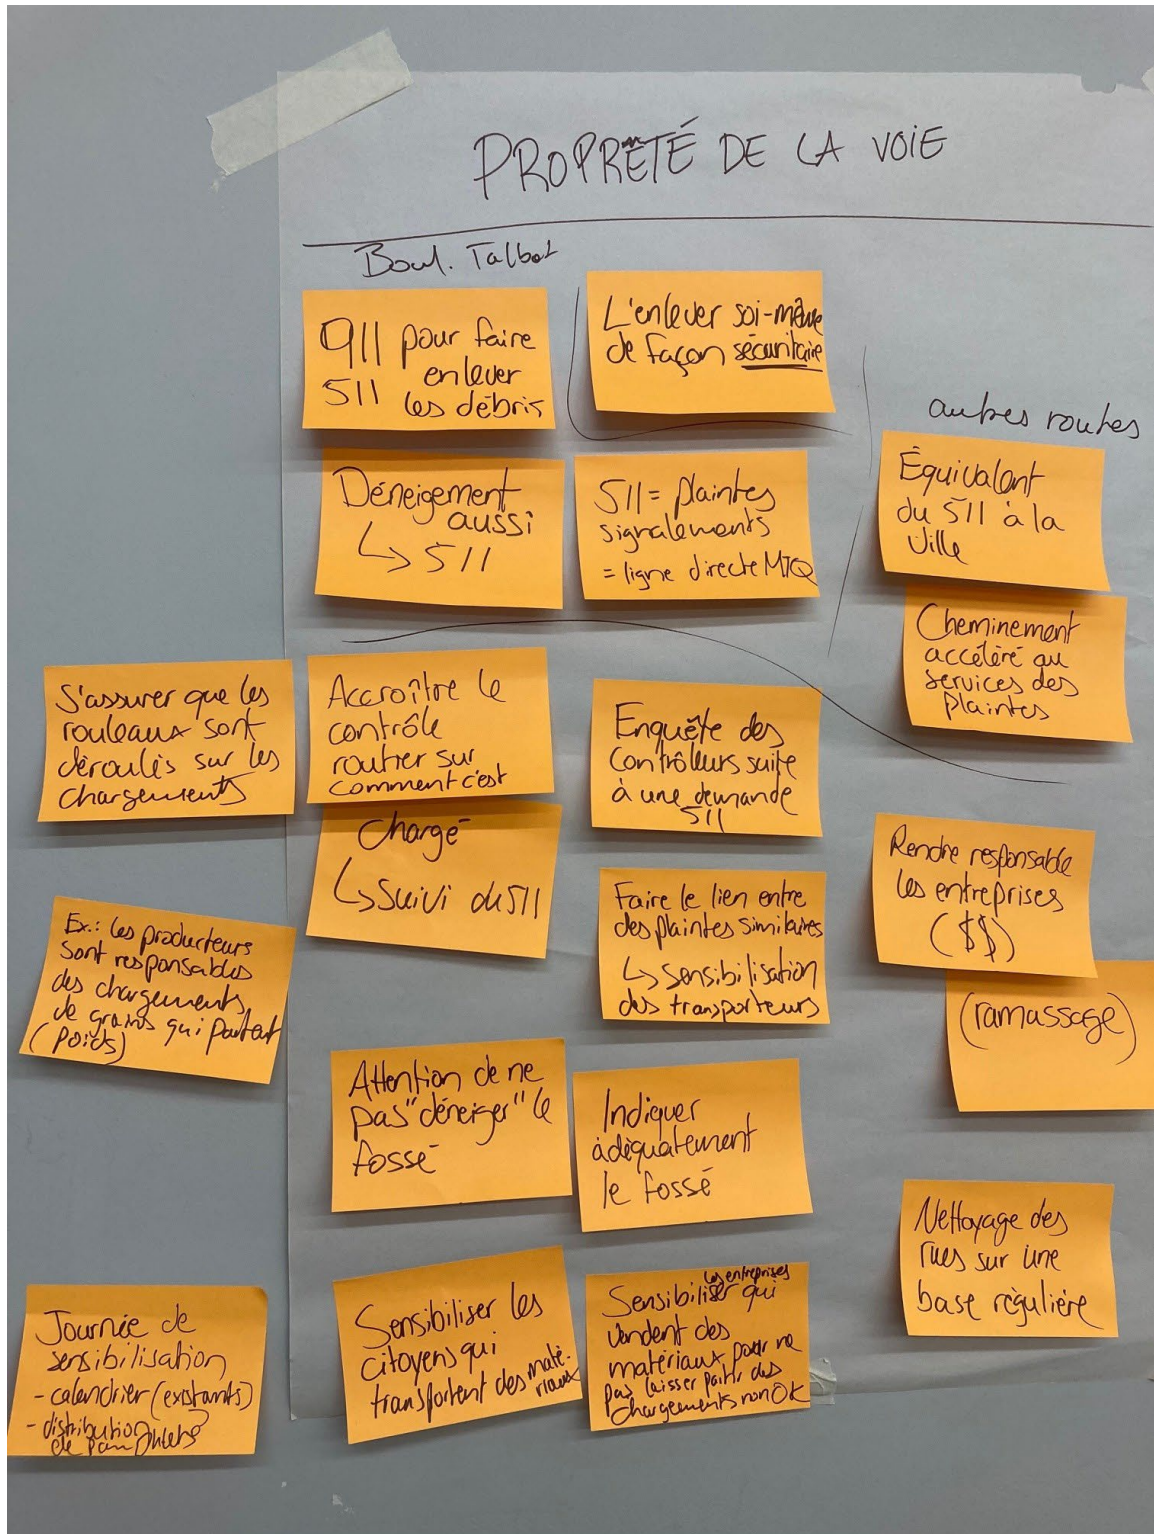 PROPRETÉ DE LA VOIE
Boul. Talbot
911 pour faire
511 enlever
les débris
L'enlever soi-même
de façon sécuritaire
Déneigement
aussi
↳ 511
511 = plaintes
signalements
= ligne directe MTQ
autres routes
Équivalent
du 511 à la
Ville
Cheminement
accéléré au
services des
plaintes
S'assurer que les
rouleaux sont
déroulés sur les
chargements
Accroître le
contrôle
routier sur
comment c'est
chargé
↳ Suivi du 511
Enquête des
contrôleurs suite
à une demande
511
Ex.: les producteurs
sont responsables
des chargements
de grains qui partent
(poids)
Faire le lien entre
des plaintes similaires
↳ sensibilisation
des transporteurs
Rendre responsable
les entreprises
($$)
(ramassage)
Attention de ne
pas "déneiger" le
fossé
Indiquer
adéquatement
le fossé
Nettoyage des
rues sur une
base régulière
Journée de
sensibilisation
- calendrier (existants)
- distribution
de pamphlets
Sensibiliser les
citoyens qui
transportent des maté-
riaux
les entreprises
Sensibiliser qui
vendent des
matériaux pour ne
pas laisser partir des
chargements non OK